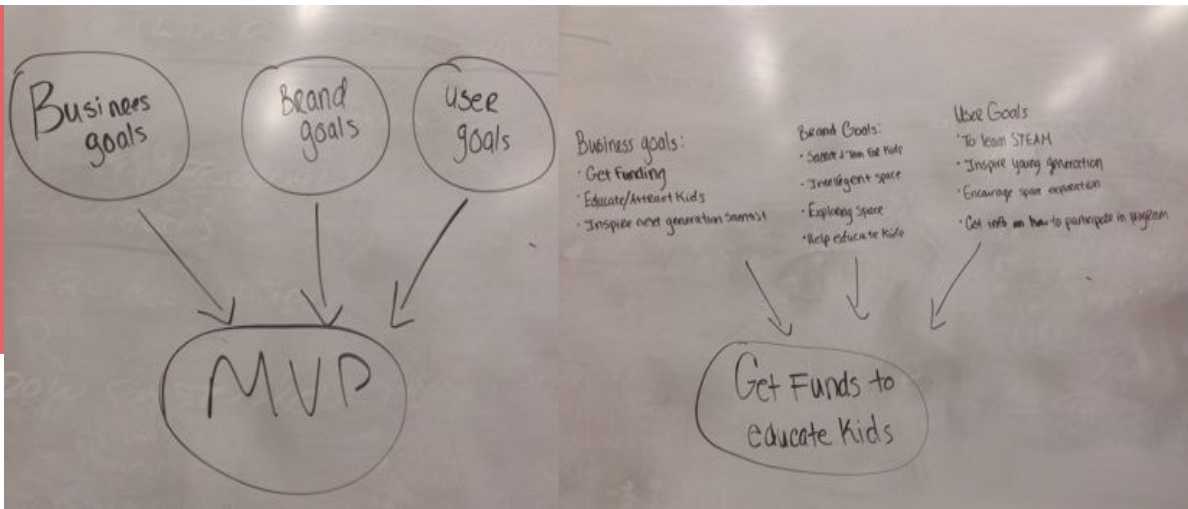 Business
goals
Brand
goals
User
goals
MVP
Business goals:
· Get Funding
· Educate/Attract Kids
· Inspire next generation
Brand Goals:
· for Kids
· space
· Exploring space
· Help educate kids
User Goals
· To learn STEAM
· Inspire young generation
· Encourage space exploration
· Get info on how to participate in program
Get Funds to
educate Kids